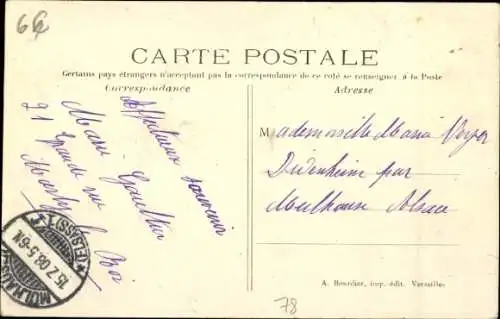 66
CARTE POSTALE
Certains pays étrangers n'acceptent pas la correspondance de ce côté se renseigner à la Poste
Correspondance
Adresse
Affectueux souvenir
Marie Gaultier
21 Grande rue
Marly le Roi
Mademoiselle Maria
Didenheim par
Mulhouse Alsace
MÜLHAUSEN
(ELSASS)
15.7.08.5-6N.
A. Bourdier, imp. édit. Versailles.
78